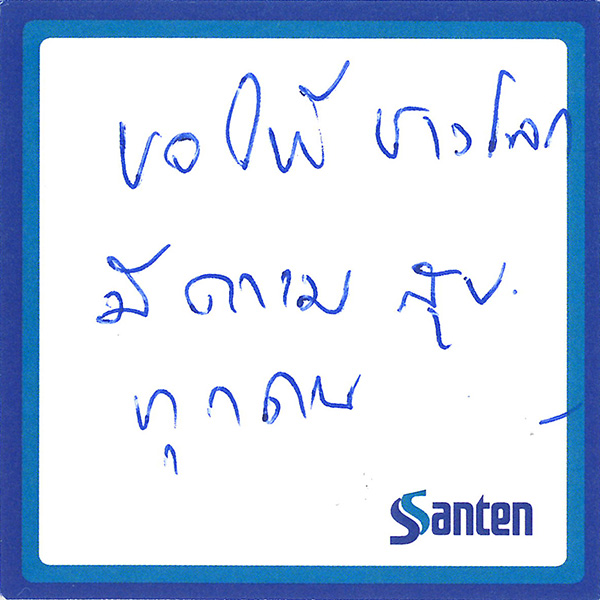 ขอให้ ชาวโลก
มี ความ สุข.
ทุกคน
Santen